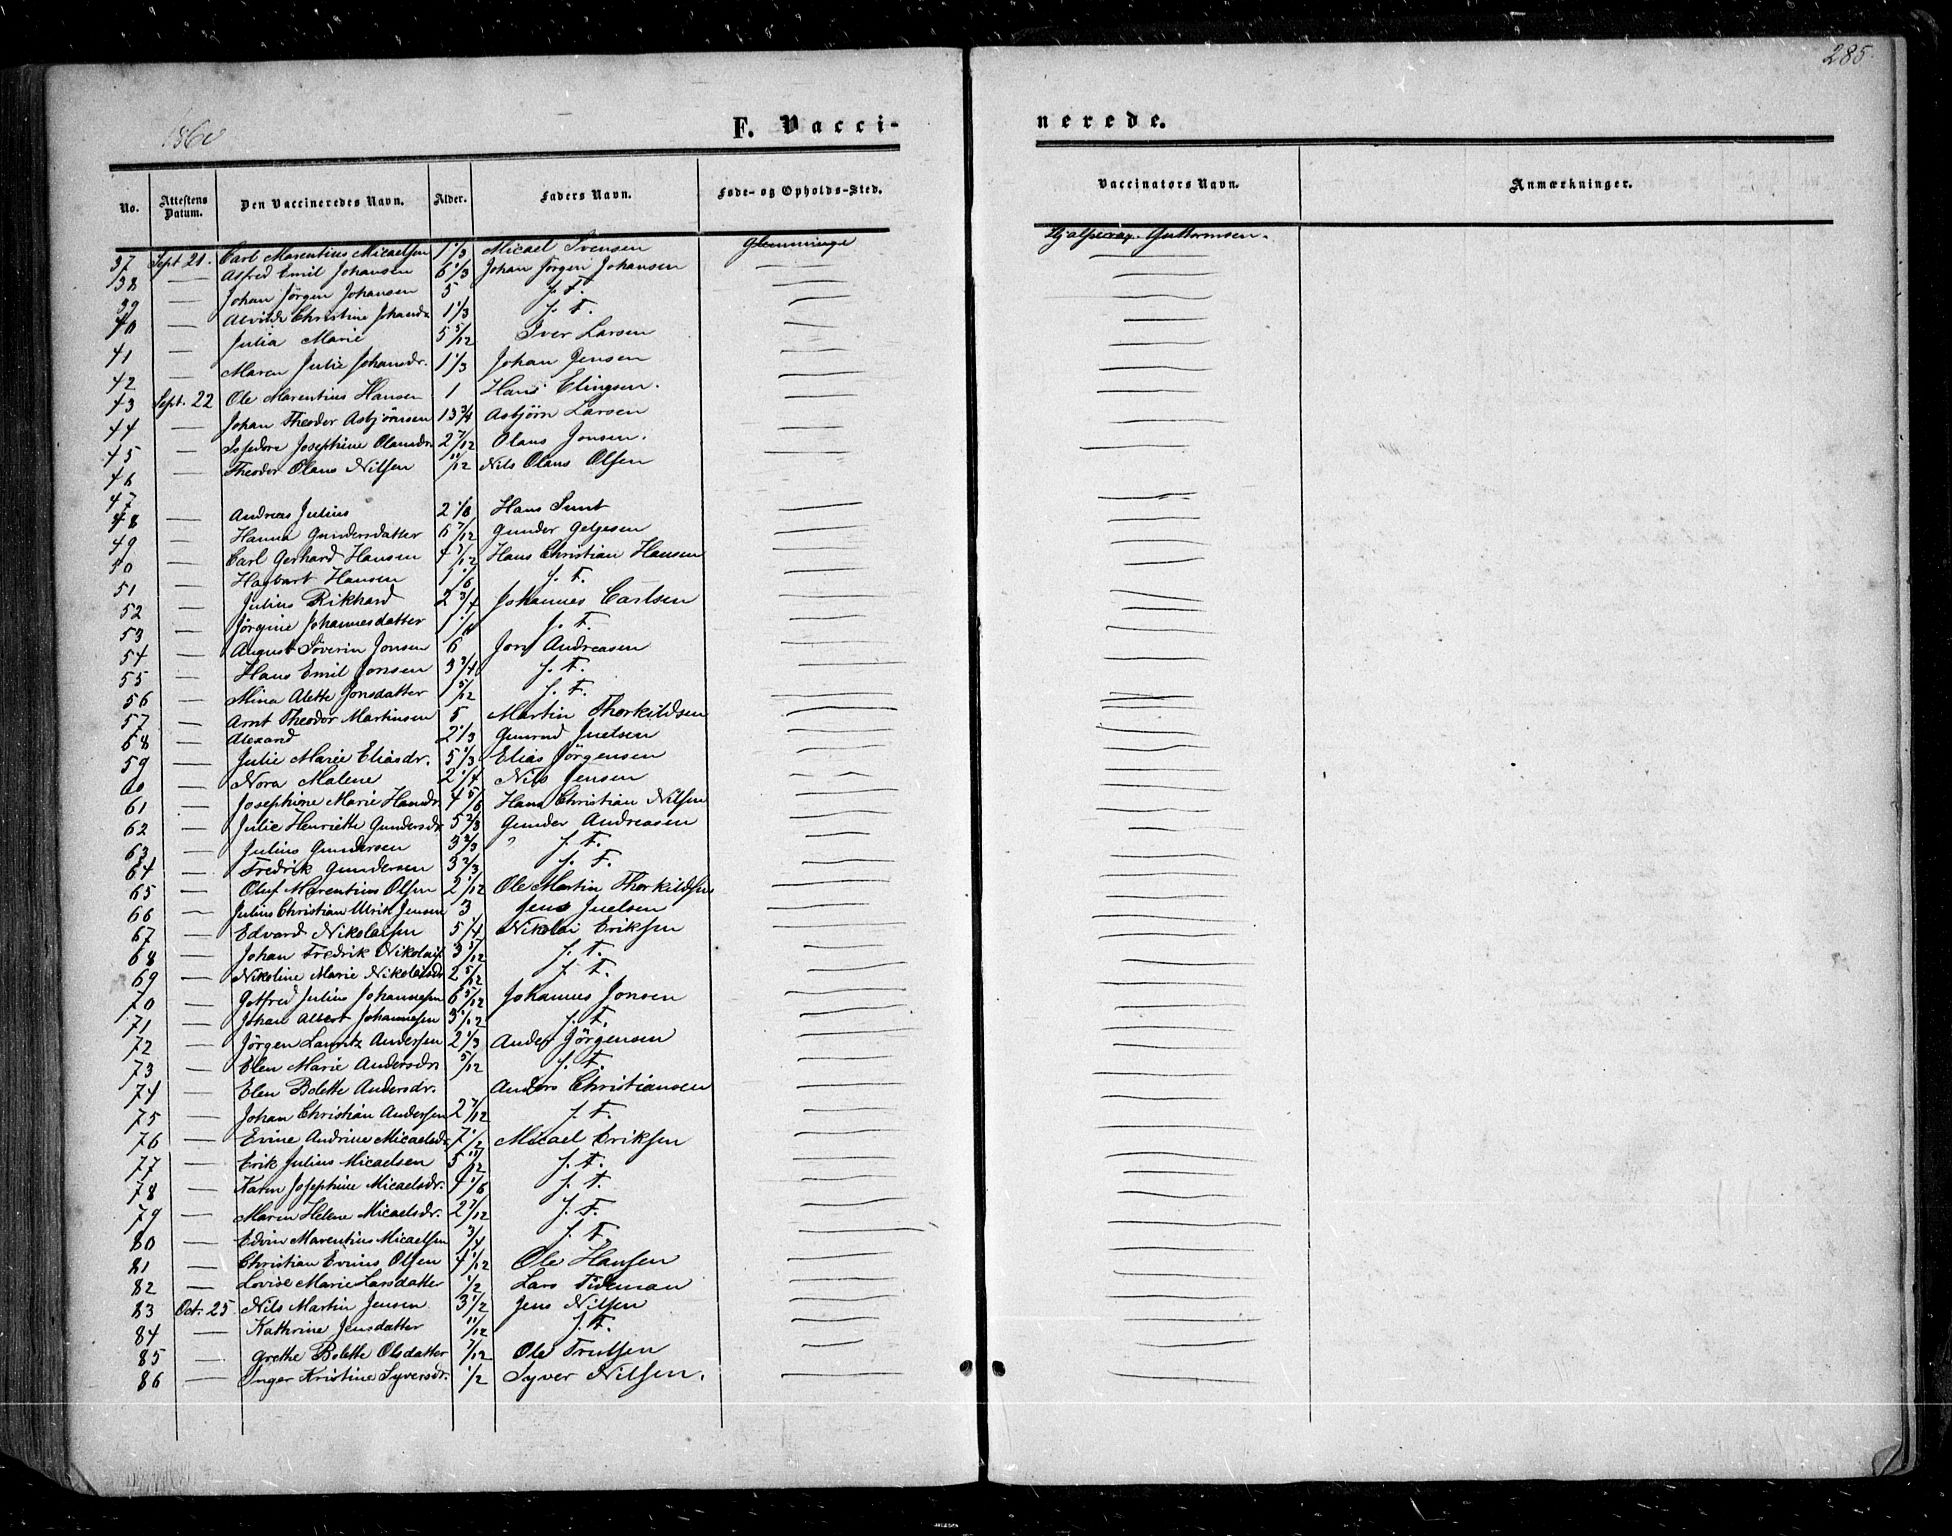 285.
1860
F. Vacci-
nerede.
No. Attestens Datum. Den Vaccineredes Navn. Alder. Faders Navn. Føde- og Opholds-Sted. Vaccinators Navn. Anmærkninger.
37 Sept. 21. Carl Marentius Micaelsen 1 1/3 Micael Svensen Glemminge Hjalpevac. Guttormsen.
38 — Alfred Emil Johansen 6 1/3 Johan Jørgen Johansen — —
39 — Johan Jørgen Johansen 5 s. F. — —
40 — Alvilde Christine Johansdr. 1 1/3 s. F. — —
41 — Julia Marie 5 5/12 Iver Larsen — —
42 — Maren Julie Johansdr. 1 1/3 Johan Jensen — —
43 Sept. 22 Ole Marentius Hansen 1 Hans Elingsen. — —
44 — Johan Theodor Asbjörnsen 13 3/4 Asbjørn Larsen — —
45 — Josephine Olausdr. 2 7/12 Olaus Jonsen. — —
46 — Theodor Olaus Nilsen 11/12 Nils Olaus Olsen — —
47
48 — Andreas Julius 2 1/8 Hans — —
49 — Hanna Gundersdatter 6 7/12 Gunder Helgesen — —
50 — Carl Gerhard Hansen 4 7/12 Hans Christian Hansen — —
51 — Hagbart Hansen 1 1/6 s. F. — —
52 — Julius Rikhard 2 3/4 Johannes Carlsen — —
53 — Jörgine Johannesdatter s. F. — —
54 — August Söverin Jonsen 6 Jon Andreasen — —
55 — Hans Emil Jonsen 3 3/4 s. F. — —
56 — Mina Alette Jonsdatter 1 5/12 s. F. — —
57 — Arnt Theodor Martinsen 5 Martin Thorkildsen — —
58 — Alexand 2 1/3 Juelsen — —
59 — Julie Marie Eliasdr. 5 1/3 Elias Jörgensen — —
60 — Nora Malene 2 1/4 Nils Jensen — —
61 — Josephine Marie Hansdr. 4 5/6 Hans Christian Nilsen — —
62 — Julie Henriette Gundersdr. 5 2/3 Gunder Andreasen — —
63 — Julius Gundersen 3 2/3 " s. F. — —
64 — Fredrik Gundersen 3 2/3 s. F. — —
65 — Oluf Marentius Olsen 2 1/12 Ole Martin Thorkildsen — —
66 — Julius Christian Ulrik Jensen 3 Jens Juelsen — —
67 — Edvard Nikolaisen 5 1/4 Nikolai Eriksen — —
68 — Johan Fredrik Nikolais. s. F. — —
69 — Nikoline Marie Nikolaisdr. 2 5/12 s. F. — —
70 — Gotfred Julius Johannesen 6 5/12 Johannes Jonsen — —
71 — Johan Albert Johannesen 3 1/12 s. F. — —
72 — Jörgen Lauritz Andersen 2 1/3 Anders Jörgensen — —
73 — Elen Marie Andersdr. 5/12 s. F. — —
74 — Elen Bolette Andersdr. Anders Christiansen — —
75 — Johan Christian Andersen 2 7/12 s. F. — —
76 — Evine Andrine Micaelsdr. 7 1/2 Micael Eriksen — —
77 — Erik Julius Micaelsen 5 11/12 s. F. — —
78 — Karen Josephine Micaelsdr. 4 1/6 s. F. — —
79 — Maren Helene Micaelsdr. 2 7/12 s. F. — —
80 — Edvin Marentius Micaelsen 3/4 s. F. — —
81 — Christian Evinus Olsen 4 1/12 Ole Hansen — —
82 — Lovise Marie Larsdatter 1/2 Lars Tideman — —
83 Oct. 25 Nils Martin Jensen 3 1/2 Jens Nilsen — —
84 — Kathrine Jensdatter 11/12 s. F. — —
85 — Grethe Bolette Olsdatter 7/12 Ole Trulsen — —
86 — Inger Kristine Syversdr. 1/2 Syver Nilsen. — —